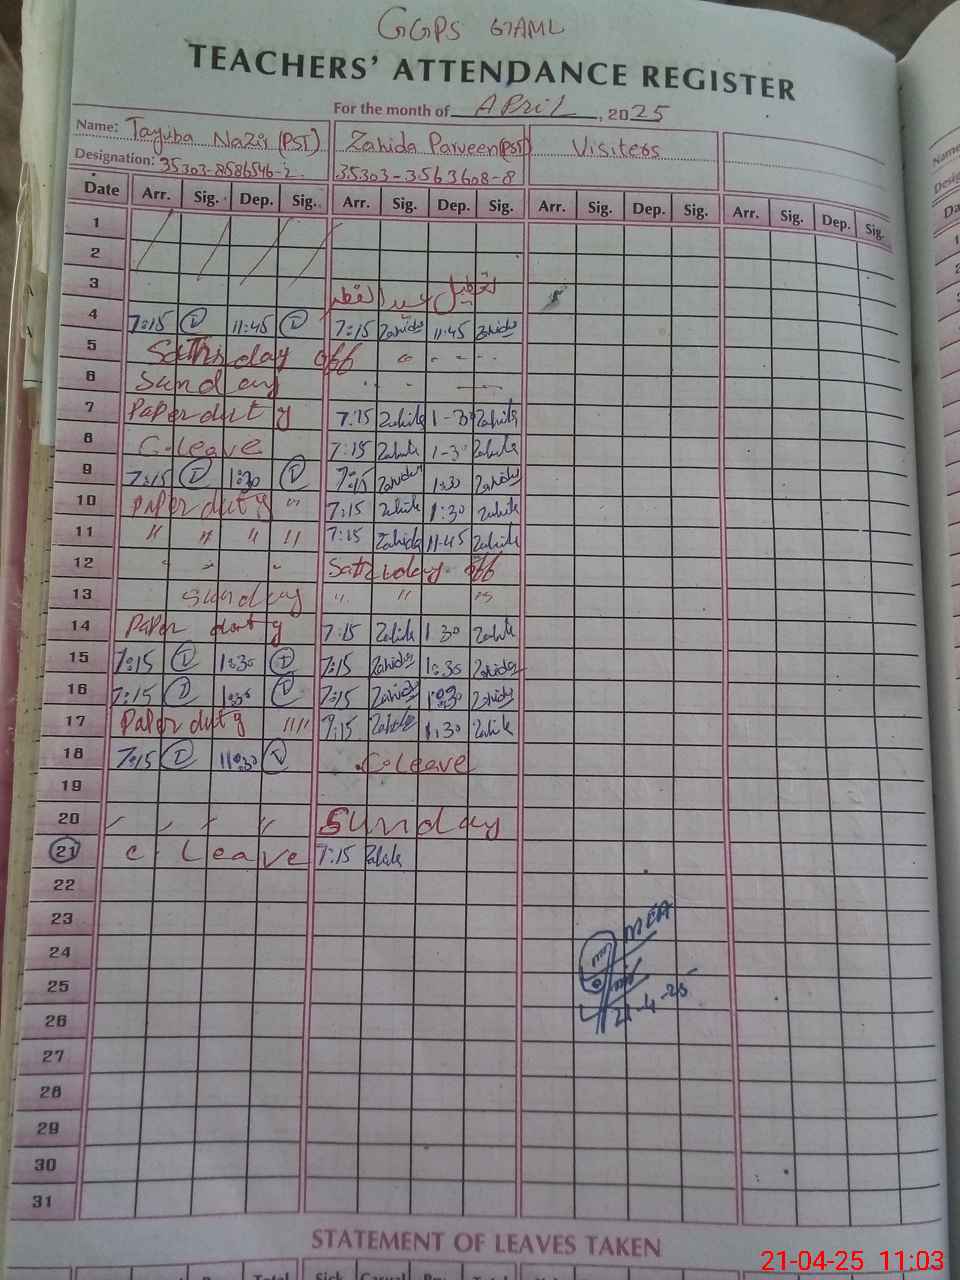 GGPS 67AML
TEACHERS' ATTENDANCE REGISTER
For the month of April, 2025
Name: Tayuba Nazir (PST) Zahida Parveen (PST) Visiters
Designation: 35303-8586546-2 35303-3563608-8
Date Arr. Sig. Dep. Sig. Arr. Sig. Dep. Sig. Arr. Sig. Dep. Sig. Arr. Sig. Dep. Sig.
1
2
3 تعطیل عید الفطر
4 7:15 11:45 7:15 Zahida 11:45 Zahida
5 Saturday off
6 Sunday
7 Paper duty 7:15 Zahida 1-30 Zahida
8 C.leave 7:15 Zahida 1-30 Zahida
9 7:15 1:30 7:15 Zahida 1:30 Zahida
10 Paper duty " 7:15 Zahida 1:30 Zahida
11 " " " " 7:15 Zahida 11-45 Zahida
12 Saturday off
13 Sunday " " "
14 Paper duty 7:15 Zahida 1 30 Zahida
15 7:15 1:30 7:15 Zahida 1:30 Zahida
16 7:15 1:30 7:15 Zahida 1:30 Zahida
17 Paper duty "" 7:15 Zahida 1:30 Zahida
18 7:15 11:30 C.leave
19
20 Sunday
21 C. Leave 7:15 Zahida
22
23 MEA
24
25
26 21-4-25
27
28
29
30
31
STATEMENT OF LEAVES TAKEN
21-04-25 11:03